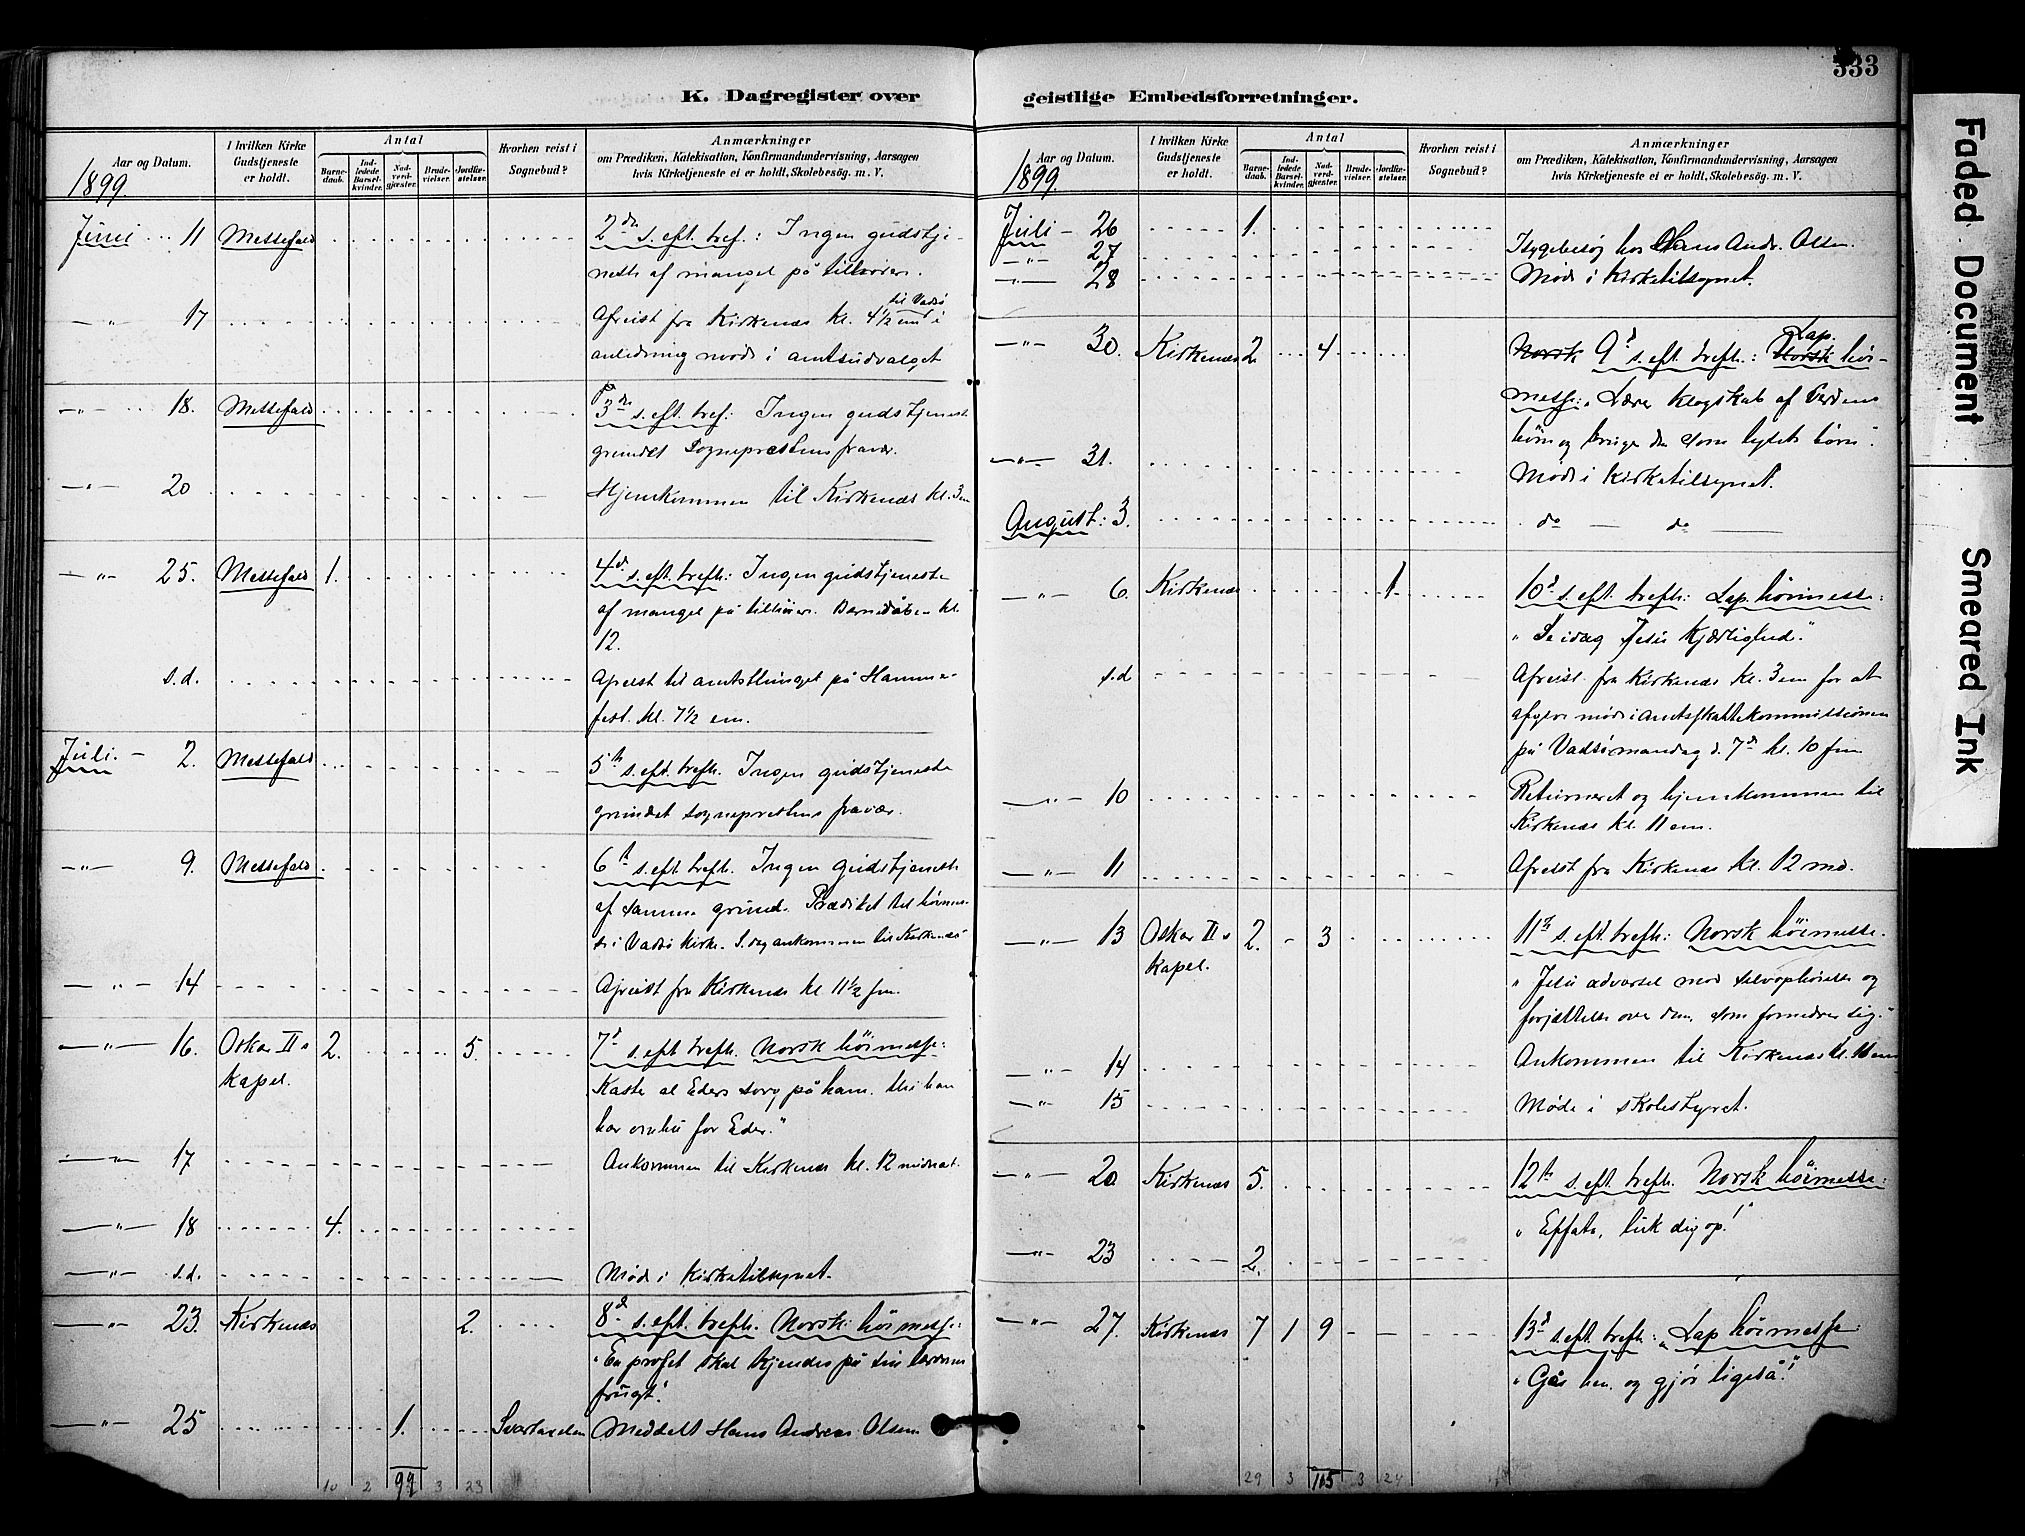 333
K. Dagregister over
geistlige Embedsforretninger.
Aar og Datum.
1899
I hvilken Kirke Gudstjeneste er holdt.
Antal
Barne-daab.
Ind-ledede Barsel-kvinder.
Nad-verd-gjester.
Brude-vielser.
Jordfæ-stelser.
Hvorhen reist i Sognebud?
Anmærkninger
om Prædiken, Katekisation, Konfirmandundervisning, Aarsagen
hvis Kirketjeneste ei er holdt, Skolebesøg. m. V.
Juni 11 Messefald 2den s. eft. tref.: Ingen gudstje-
neste af mangel på tilhører.
—"— 17 Afreist fra Kirkenæs kl. 4½ em til Vadsø i
anledning møde i amtsudvalget
—"— 18. Messefald 3die s. eft. tref: Ingen gudstjeneste
grundet Sogneprestens fravær.
—"— 20 Hjemkommen til Kirkenæs kl. 3 em
—"— 25. Messefald 1. 4d s. eft. trefh: Ingen gudstjeneste
af mangel på tilhører. Barnedåben kl.
12.
s.d. Afreist til amtsthinget på Hammer-
fest. kl. 7½ em.
Juli. — 2. Messefald 5te s. eft. trefh. Ingen gudstjeneste
grundet sogneprestens fravær.
—"— 9. Messefald 6te s. eft. trefh. Ingen gudstjeneste
af samme grund. Prædiket til høimes-
se i Vadsø Kirke. S. dag ankommen til Kirkenæs
—"— 14 Afreist fra Kirkenæs kl 11½ fm.
—"— 16. Oskar II s 2. 5. 7d s. eft trefh. Norsk høimesse:
kapel. Kaste al Eders sorg på ham. thi han
har omhu for Eder."
—"— 17 Ankommen til Kirkenæs kl. 12 midnat.
—"— 18 4.
—"— s.d. Møde i kirketilsynet.
—"— 23. Kirkenæs 2. 8d s. eft. trefh. Norsk høimesse:
"En profet skal kjendes på sin lærdoms
frugt."
—"— 25 1. Meddelt Hans Andreas Olsen
10 2 99 3 23
Aar og Datum.
1899.
I hvilken Kirke Gudstjeneste er holdt.
Antal
Barne-daab.
Ind-ledede Barsel-kvinder.
Nad-verd-gjester.
Brude-vielser.
Jordfæ-stelser.
Hvorhen reist i Sognebud?
Anmærkninger
om Prædiken, Katekisation, Konfirmandundervisning, Aarsagen
hvis Kirketjeneste ei er holdt, Skolebesøg. m. V.
Juli — 26 1.
—"— 27 Sygebesøg hos Hans Andr. Olsen.
—"— 28 Møde i Kirketilsynet.
—"— 30. Kirkenæs 2 4 Norsk 9d s. eft trefh.: Norsk Lap. høi-
messe: "Lærer klogskab af Verdens
børn og bruger den som lysets børn".
—"— 31. Møde i Kirketilsynet.
August: 3. do — do —
—"— 6. Kirkenæs 1. 10d s. eft. trefh: Lap. høimesse:
"Se idag Jesu Kjærlighed."
s.d Afreist fra Kirkenæs kl. 3 em for at
afgive møde i amtsskattekommissionen
på Vadsø mandag d. 7d kl. 10 fm
—"— 10 Returneret og hjemkommen til
Kirkenæs kl. 11 em.
—"— 11 Afreist fra Kirkenæs kl. 12 md.
—"— 13 Oskar II s 2. 3 11te s. eft. trefh: Norsk høimesse.
kapel. "Jesu advarsel mod selvophøielse og
forjættelse over dem, som fornedrer sig."
—"— 14 Ankommen til Kirkenæs kl. 11 em
—"— 15 Møde i skolestyret.
—"— 20. Kirkenæs 5. 12te s. eft. trefh. Norsk høimesse:
"Effata, luk dig op!"
—"— 23 2.
—"— 27. Kirkenæs 7 1 9 13d s eft trefh: "Lap høimesse:
"Gå hen, og gjør ligeså!"
29 3 115 3 24
Faded Document
Smeared Ink